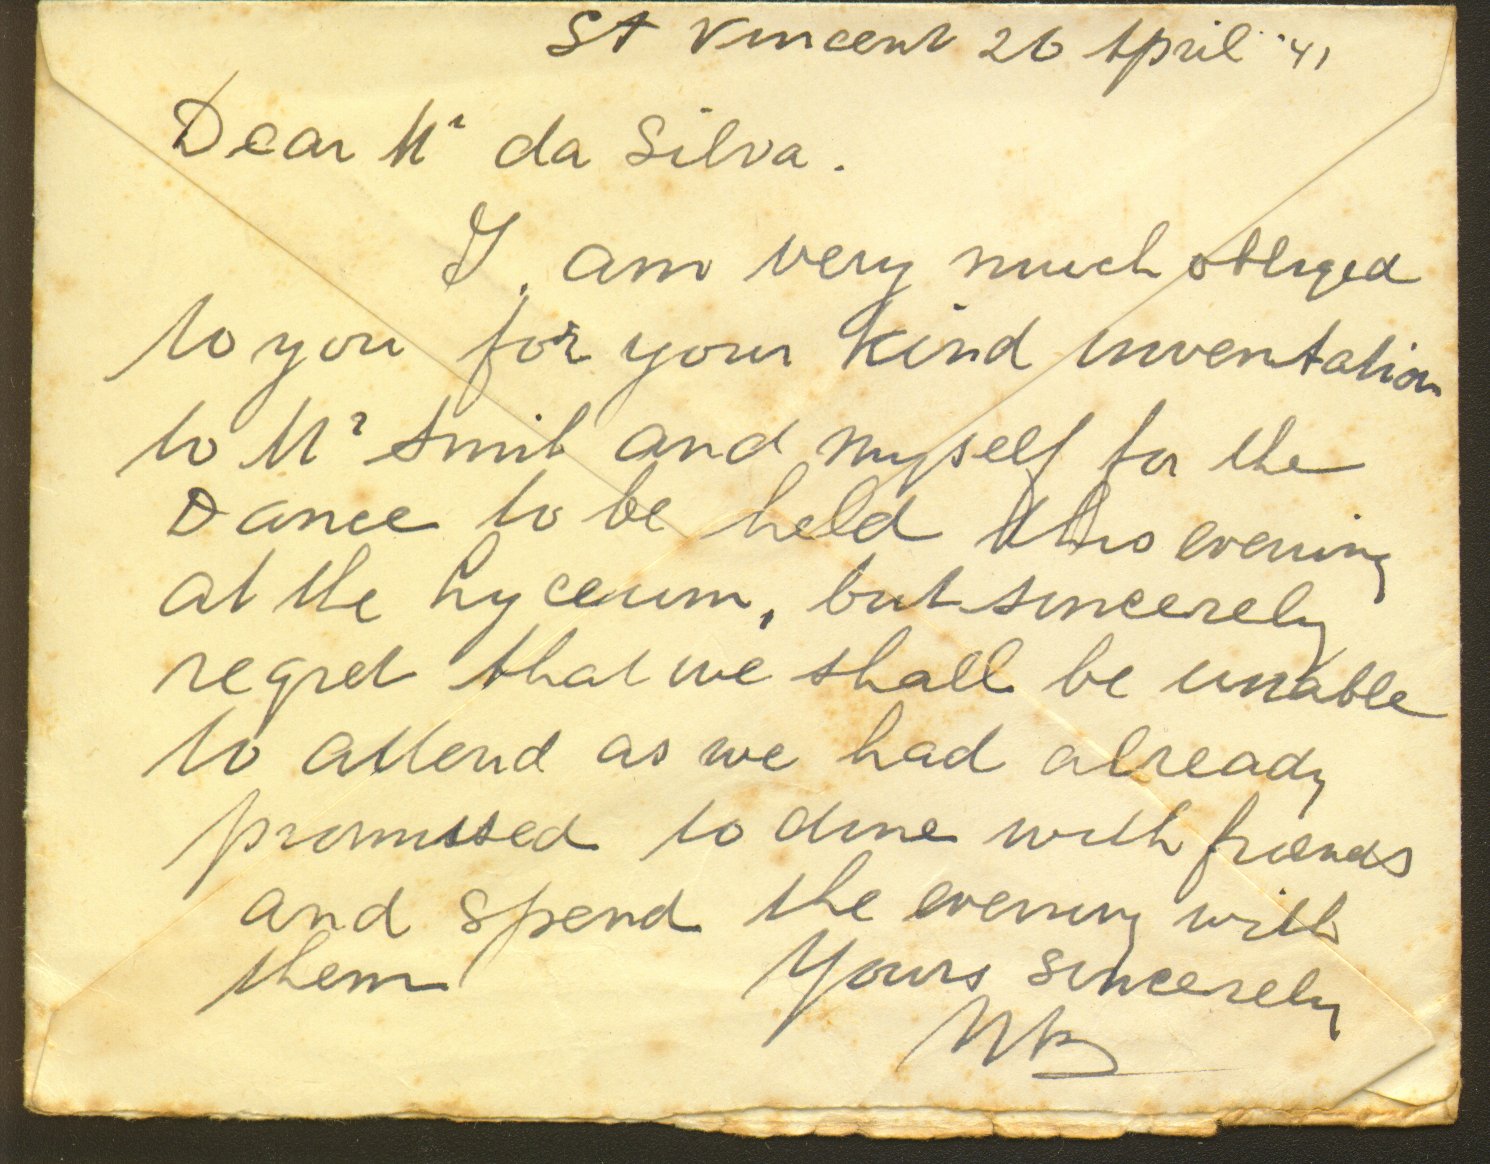 St Vincent 26 April '41
Dear Mr da Silva.
I, am very much obliged
to you for your kind inventation
to Mr Smit and myself for the
Dance to be held this evening
at the Lyceum, but sincerely
regret that we shall be unable
to attend as we had already
promissed to dine with friends
and spend the evening with
them Yours sincerely